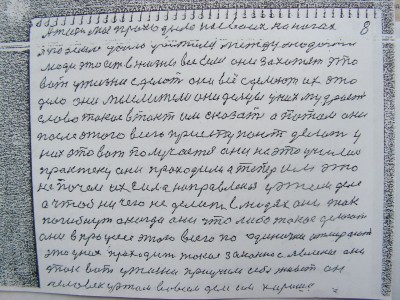 А там уже проходило на своих на ногах 8
что было учтите между людьми
люди это есть в жизни все они захотят это
вот у жизни сделать они всё сделают их это
дело они мыслители они делову у них мудрость
слово такое в такт им сказать а потом они
после этого всего приступают делать у
них это вот получается они на это учились
практику они проходили а теперь им это
не почем их сила направлена у этом деле
а чтоб ничего не делать в людях они так
погибнут никогда они что либо такое делают
они в процессе этого всего по одиночки отмирают
это у них проходит такое законное явление они
этак вот у жизни приучили себя живет он
человек у этом во всем дел им хорошо